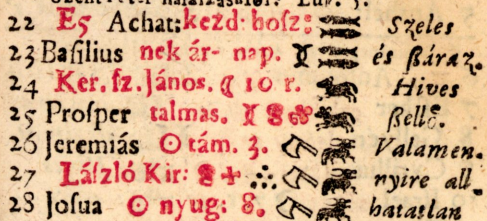 22 E5 Achat: kezd: hosz: Szeles
23 Baſilius nek ár- nap. és ßáraz.
24 Ker. ſz. János. ☾ 10 r. Hives
25 Proſper talmas. ßellő.
26 Jeremiás ☉ tám. 3. Valamen.
27 Láſzló Kir: nyire all
28 Joſua ☉ nyug: 8. hatatlan